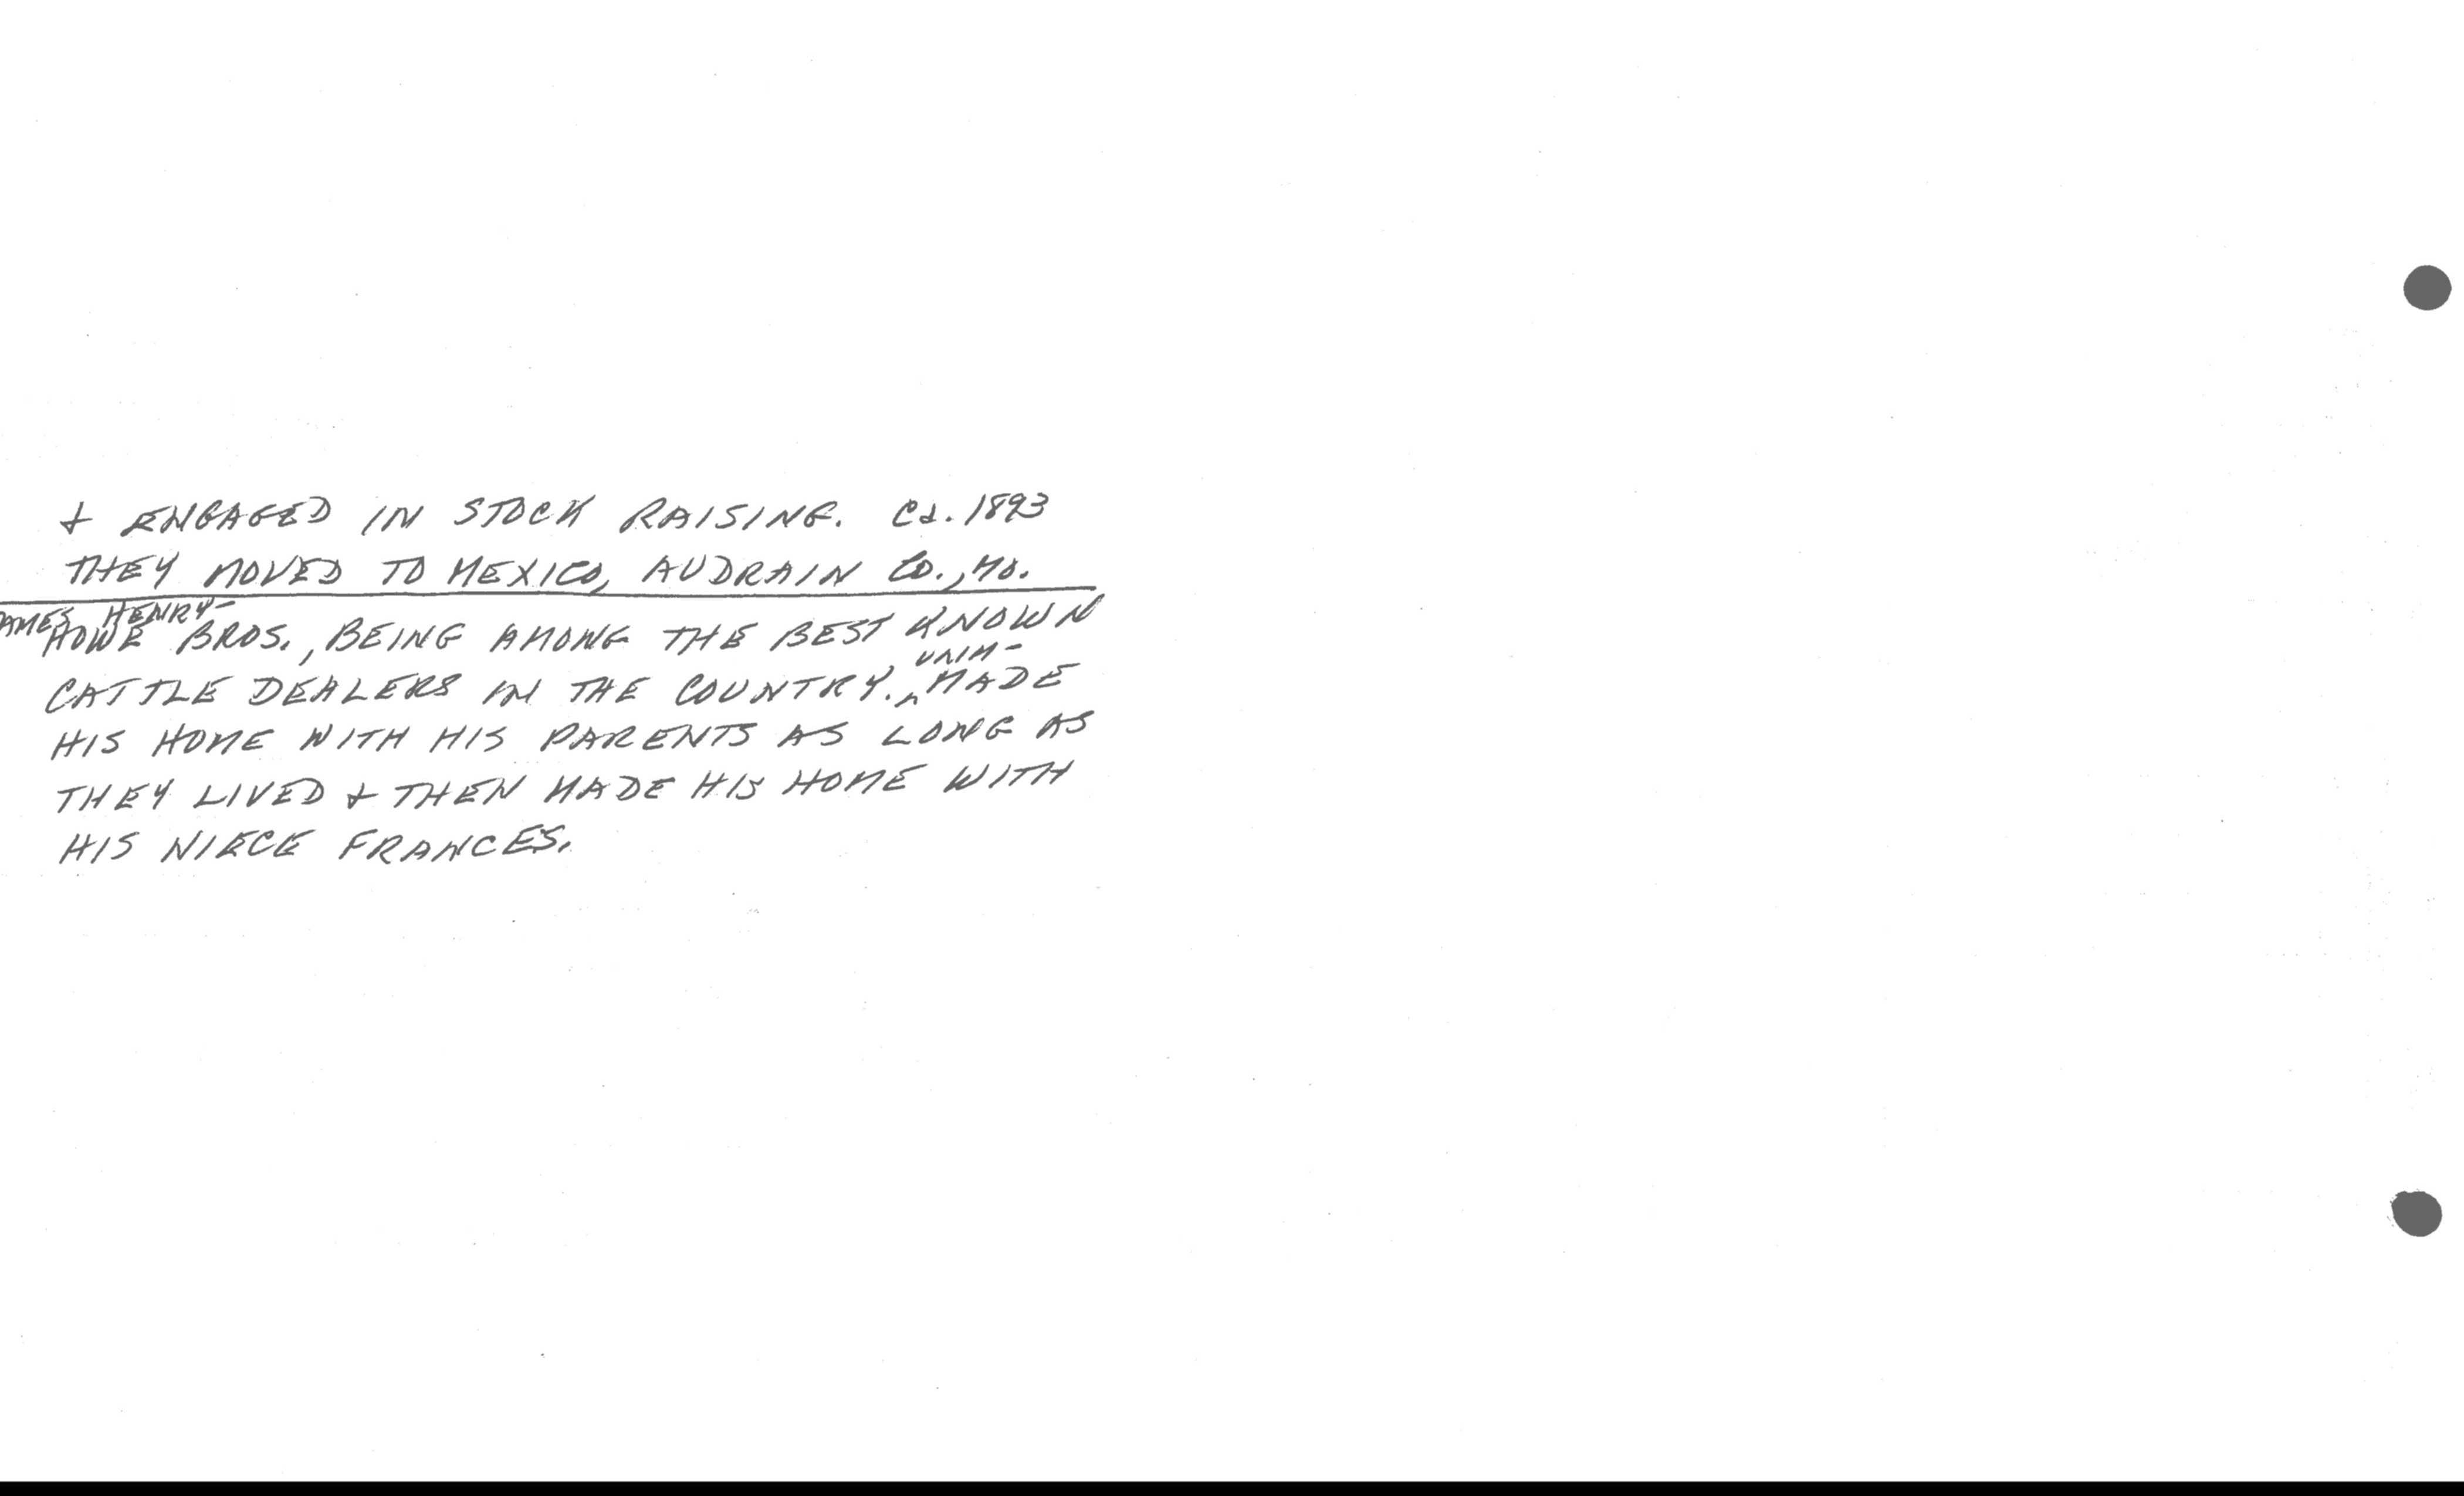 + ENGAGED IN STOCK RAISING. Ca. 1893
THEY MOVED TO MEXICO, AUDRAIN CO., MO.
AMES HENRY-
HOWE BROS., BEING AMONG THE BEST KNOWN
UNM-
CATTLE DEALERS IN THE COUNTRY. ^ MADE
HIS HOME WITH HIS PARENTS AS LONG AS
THEY LIVED + THEN MADE HIS HOME WITH
HIS NIECE FRANCES.